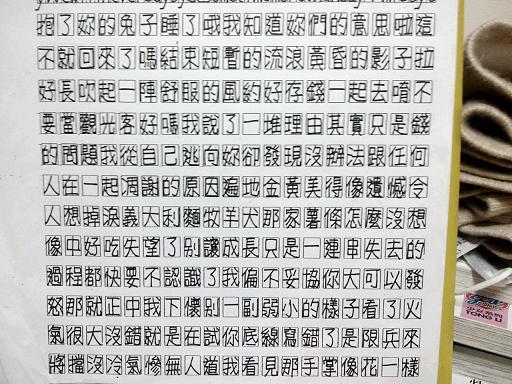 抱了妳的兔子睡了哦我知道妳們的意思啦這
不就回來了嗎結束短暫的流浪黃昏的影子拉
好長吹起一陣舒服的風約好存錢一起去唷不
要當觀光客好嗎我說了一堆理由其實只是錢
的問題我從自己逃向妳卻發現沒辦法跟任何
人在一起凋謝的原因遍地金黃美得像遺憾令
人想掉淚義大利麵牧羊犬那家薯條怎麼沒想
像中好吃失望了别讓成長只是一連串失去的
過程都快要不認識了我偏不妥協你大可以發
怒那就正中我下懷别一副弱小的樣子看了火
氣很大沒錯就是在試你底線寫錯了是限兵來
將擋沒冷氣慘無人道我看見那手掌像花一樣
TONG LI